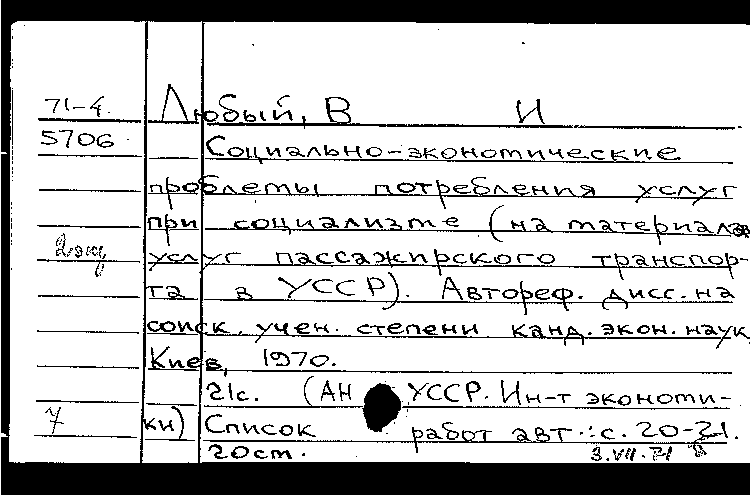 71-4 Любый, В И
5706
Социально-экономические
проблемы потребления услуг
при социализме (на материалах
2 экз
услуг пассажирского транспор-
та в УССР). Автореф. дисс. на
соиск. учен. степени канд. экон. наук
Киев, 1970.
21с. (АН УССР. Ин-т экономи-
7 ки) Список работ авт.: с. 20-21.
20cm. 3.VII.71